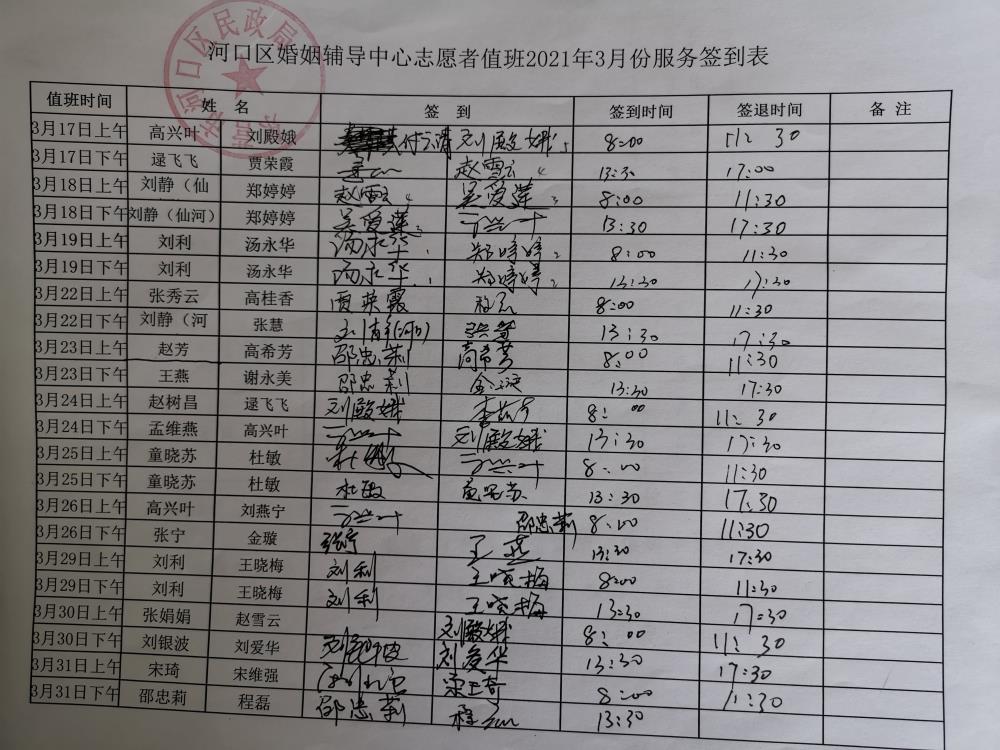 河口区民政局
河口区婚姻辅导中心志愿者值班2021年3月份服务签到表
值班时间 姓 名 签 到 签到时间 签退时间 备 注
3月17日上午 高兴叶 刘殿娥 付云清 刘殿娥 8:00 11:30
3月17日下午 逯飞飞 贾荣霞 赵雪云 13:30 17:00
3月18日上午 刘静（仙 郑婷婷 赵雪云 吴爱莲 8:00 11:30
3月18日下午 刘静（仙河） 郑婷婷 吴爱莲 13:30 17:30
3月19日上午 刘利 汤永华 汤永华 郑婷婷 8:00 11:30
3月19日下午 刘利 汤永华 汤永华 郑婷婷 13:30 17:30
3月22日上午 张秀云 高桂香 贾荣霞 8:00 11:30
3月22日下午 刘静（河 张慧 张慧 13:30 17:30
3月23日上午 赵芳 高希芳 邵忠莉 高希芳 8:00 11:30
3月23日下午 王燕 谢永美 邵忠莉 金璇 13:30 17:30
3月24日上午 赵树昌 逯飞飞 刘殿娥 8:00 11:30
3月24日下午 孟维燕 高兴叶 刘殿娥 13:30 17:30
3月25日上午 童晓苏 杜敏 8:00 11:30
3月25日下午 童晓苏 杜敏 杜敏 童晓苏 13:30 17:30
3月26日上午 高兴叶 刘燕宁 邵忠莉 8:00 11:30
3月26日下午 张宁 金璇 张宁 王燕 13:30 17:30
3月29日上午 刘利 王晓梅 刘利 王晓梅 8:00 11:30
3月29日下午 刘利 王晓梅 刘利 王晓梅 13:30 17:30
3月30日上午 张娟娟 赵雪云 刘殿娥 8:00 11:30
3月30日下午 刘银波 刘爱华 刘银波 刘爱华 13:30 17:30
3月31日上午 宋琦 宋维强 8:00 11:30
3月31日下午 邵忠莉 程磊 邵忠莉 程磊 13:30